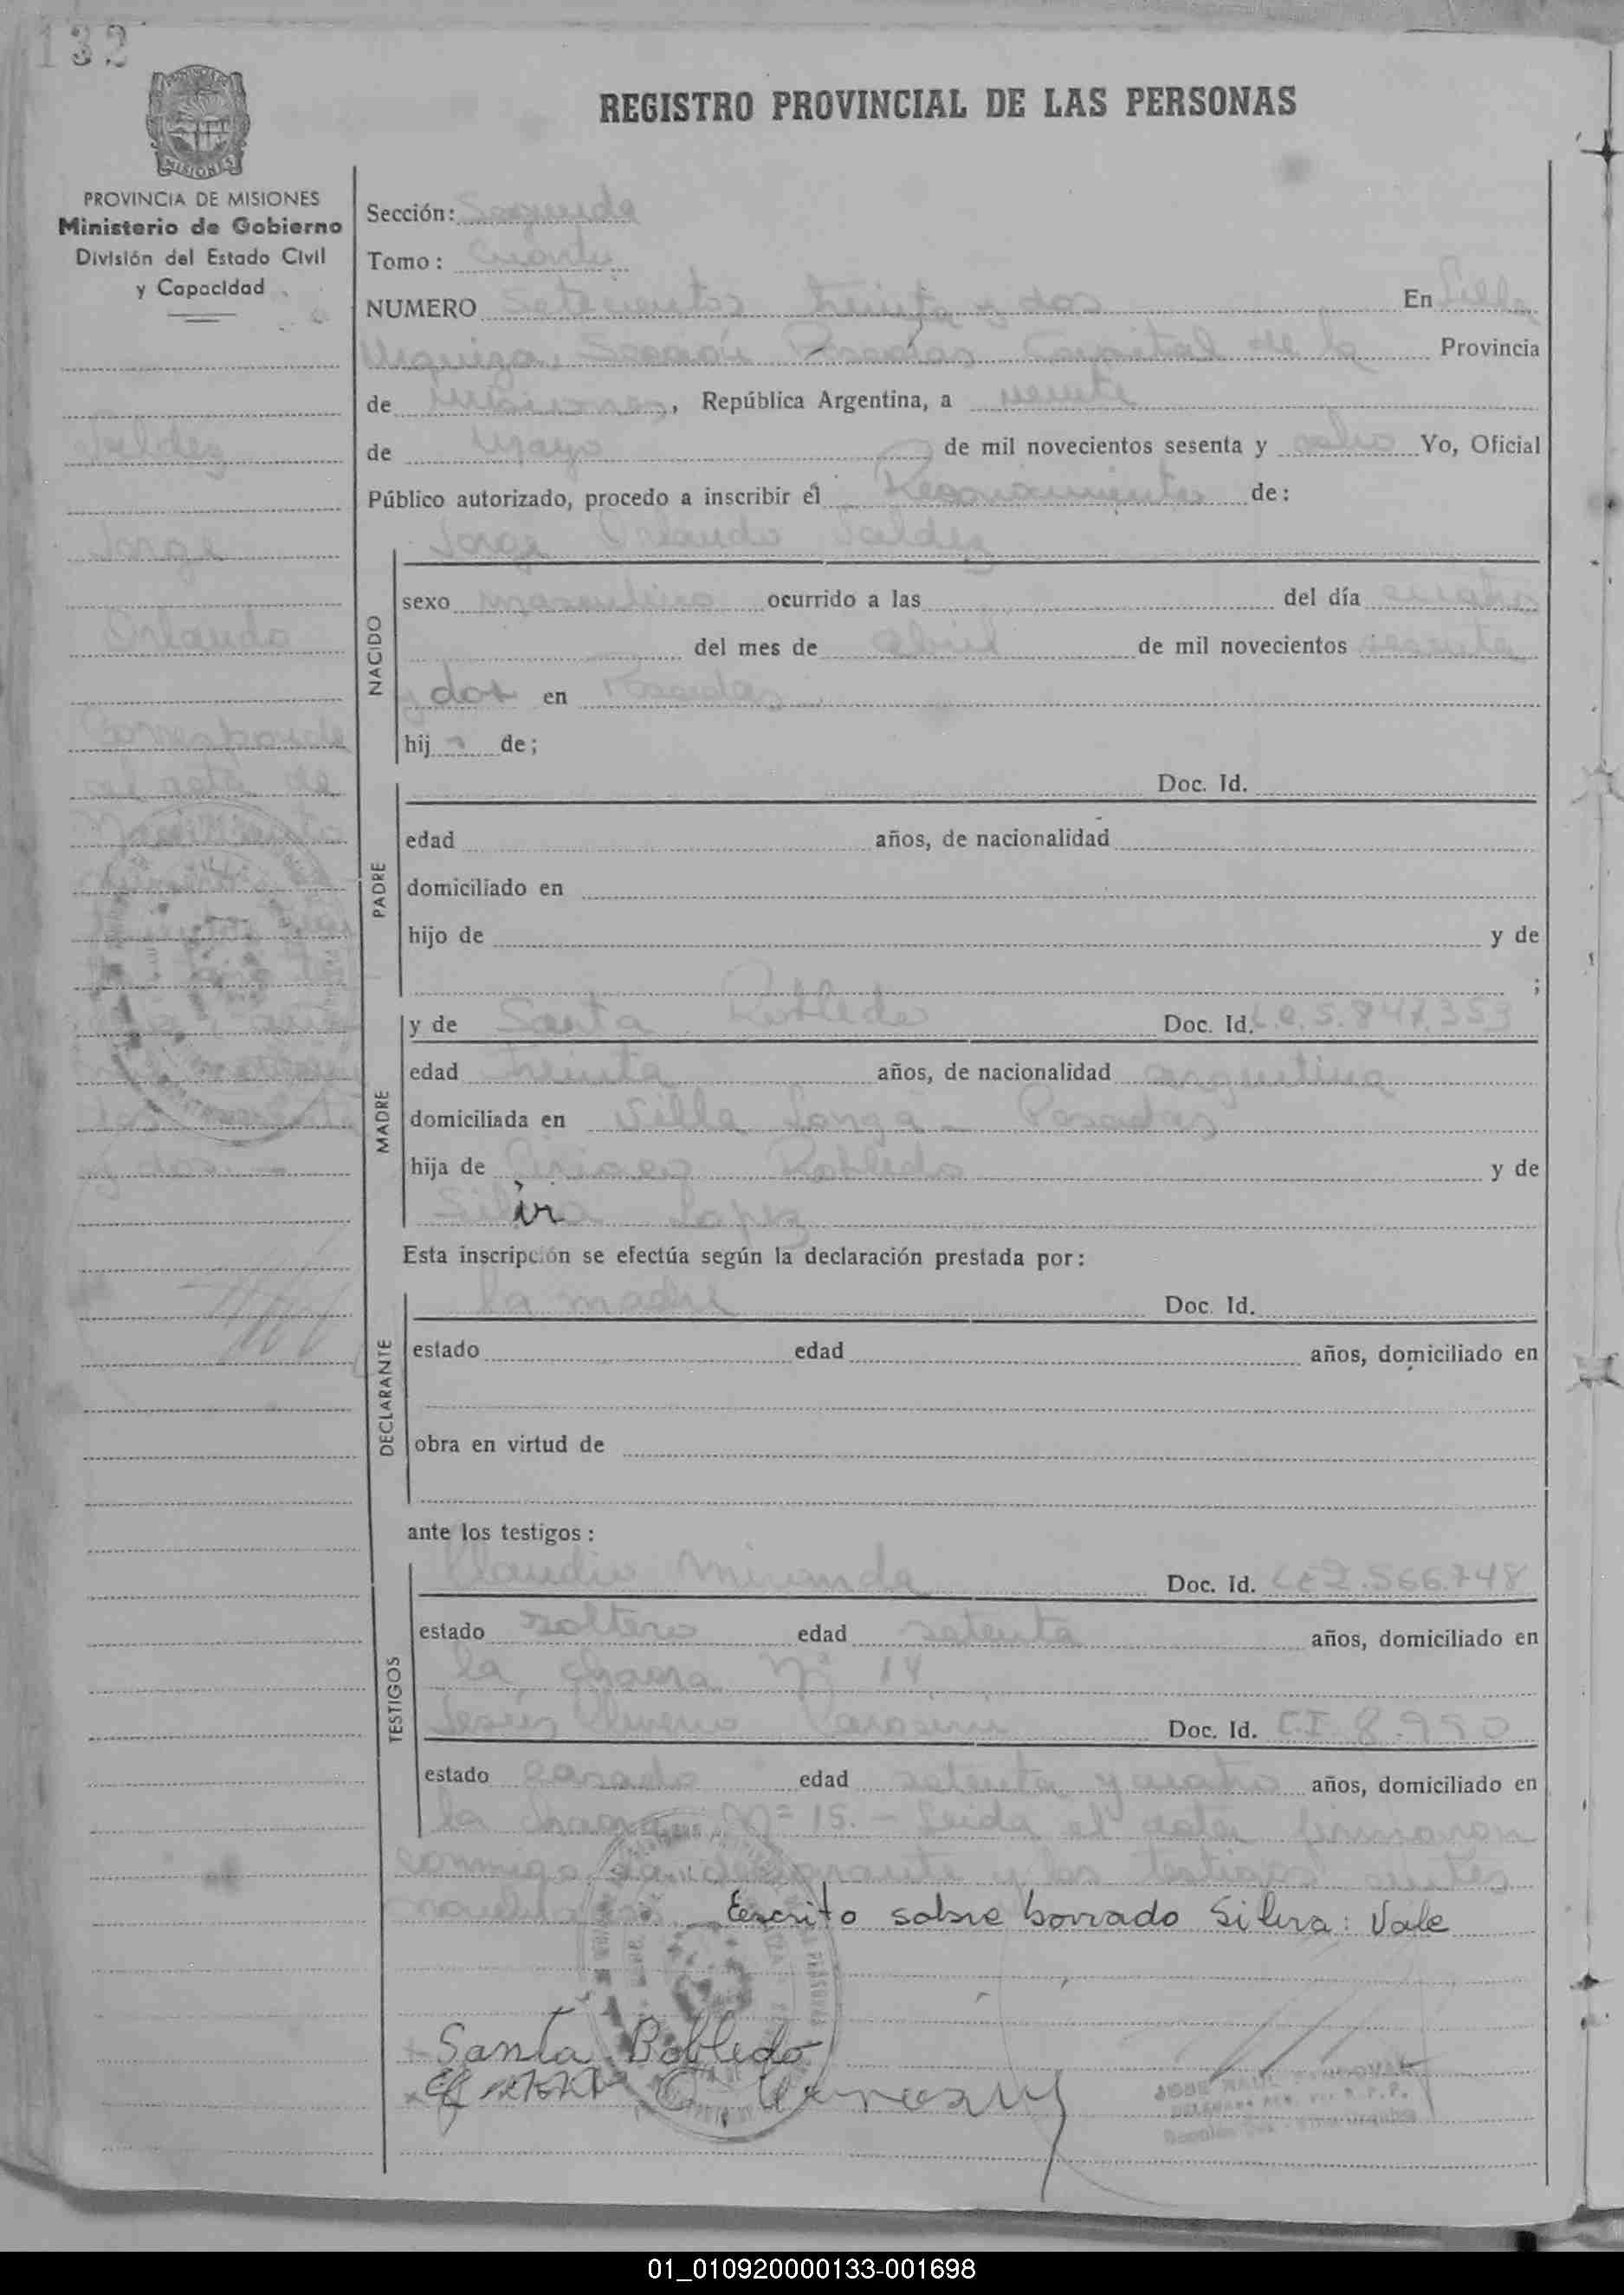 132
REGISTRO PROVINCIAL DE LAS PERSONAS
MISIONES
PROVINCIA DE MISIONES
Ministerio de Gobierno
División del Estado Civil
y Capacidad
Sección: Segunda
Tomo: Cuarto
NUMERO Setecientos treinta y dos En Villa
Urquiza, Sección Posadas Capital de la Provincia
de Misiones, República Argentina, a veinte
de mayo de mil novecientos sesenta y ocho Yo, Oficial
Público autorizado, procedo a inscribir el Reconocimiento de:
Jorge Orlando Valdez
Valdez
Jorge
Orlando
Corresponde
al acta de
Nacimiento
NACIDO
sexo masculino ocurrido a las del día cuatro
del mes de abril de mil novecientos sesenta
y dos en Posadas
hijo de;
PADRE
Doc. Id.
edad años, de nacionalidad
domiciliado en
hijo de y de
;
MADRE
y de Santa Robledo Doc. Id. L.C. 5.847.353
edad treinta años, de nacionalidad argentina
domiciliada en Villa Longa - Posadas
hija de Robledo y de
Silvia Lopez
y dos.-
Esta inscripción se efectúa según la declaración prestada por:
DECLARANTE
la madre Doc. Id.
estado edad años, domiciliado en
obra en virtud de
ante los testigos:
TESTIGOS
Claudio Miranda Doc. Id. 2.566.748
estado soltero edad setenta años, domiciliado en
la chacra Nº 14
Jesús Doc. Id. C.I. 8.990
estado casado edad setenta y cuatro años, domiciliado en
la chacra Nº 15.- Leida el acta firmaron
conmigo la declarante y los testigos antes
Escrito sobre borrado Silvia: Vale
Santa Robledo
01_010920000133-001698